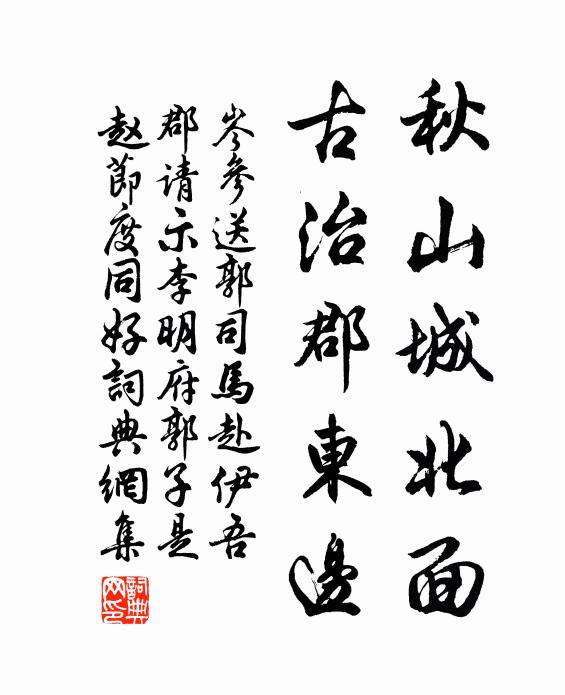 秋山城北面
古治郡東邊
岑參送郭司馬赴伊吾
郡請示李明府郭子是
赵節度同好詞典網集
詞典
网印